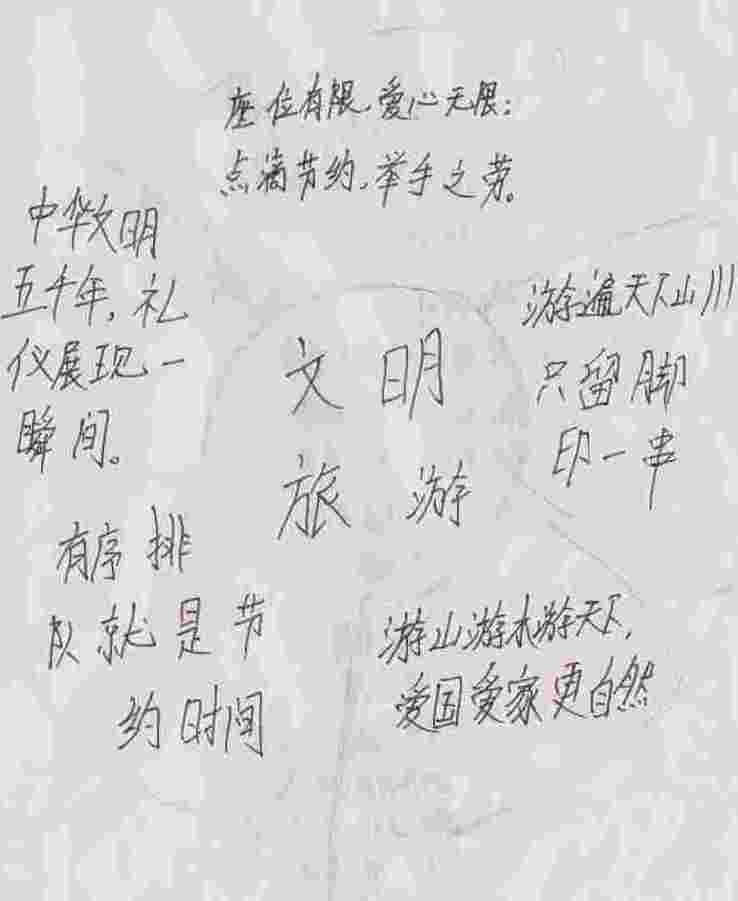 座位有限,爱心无限;
点滴节约,举手之劳。
中华文明
五千年,礼
仪展现一
瞬间。
文明
旅游
游遍天下山川
只留脚
印一串
有序排
队就是节
约时间
游山游水游天下,
爱国爱家更自然